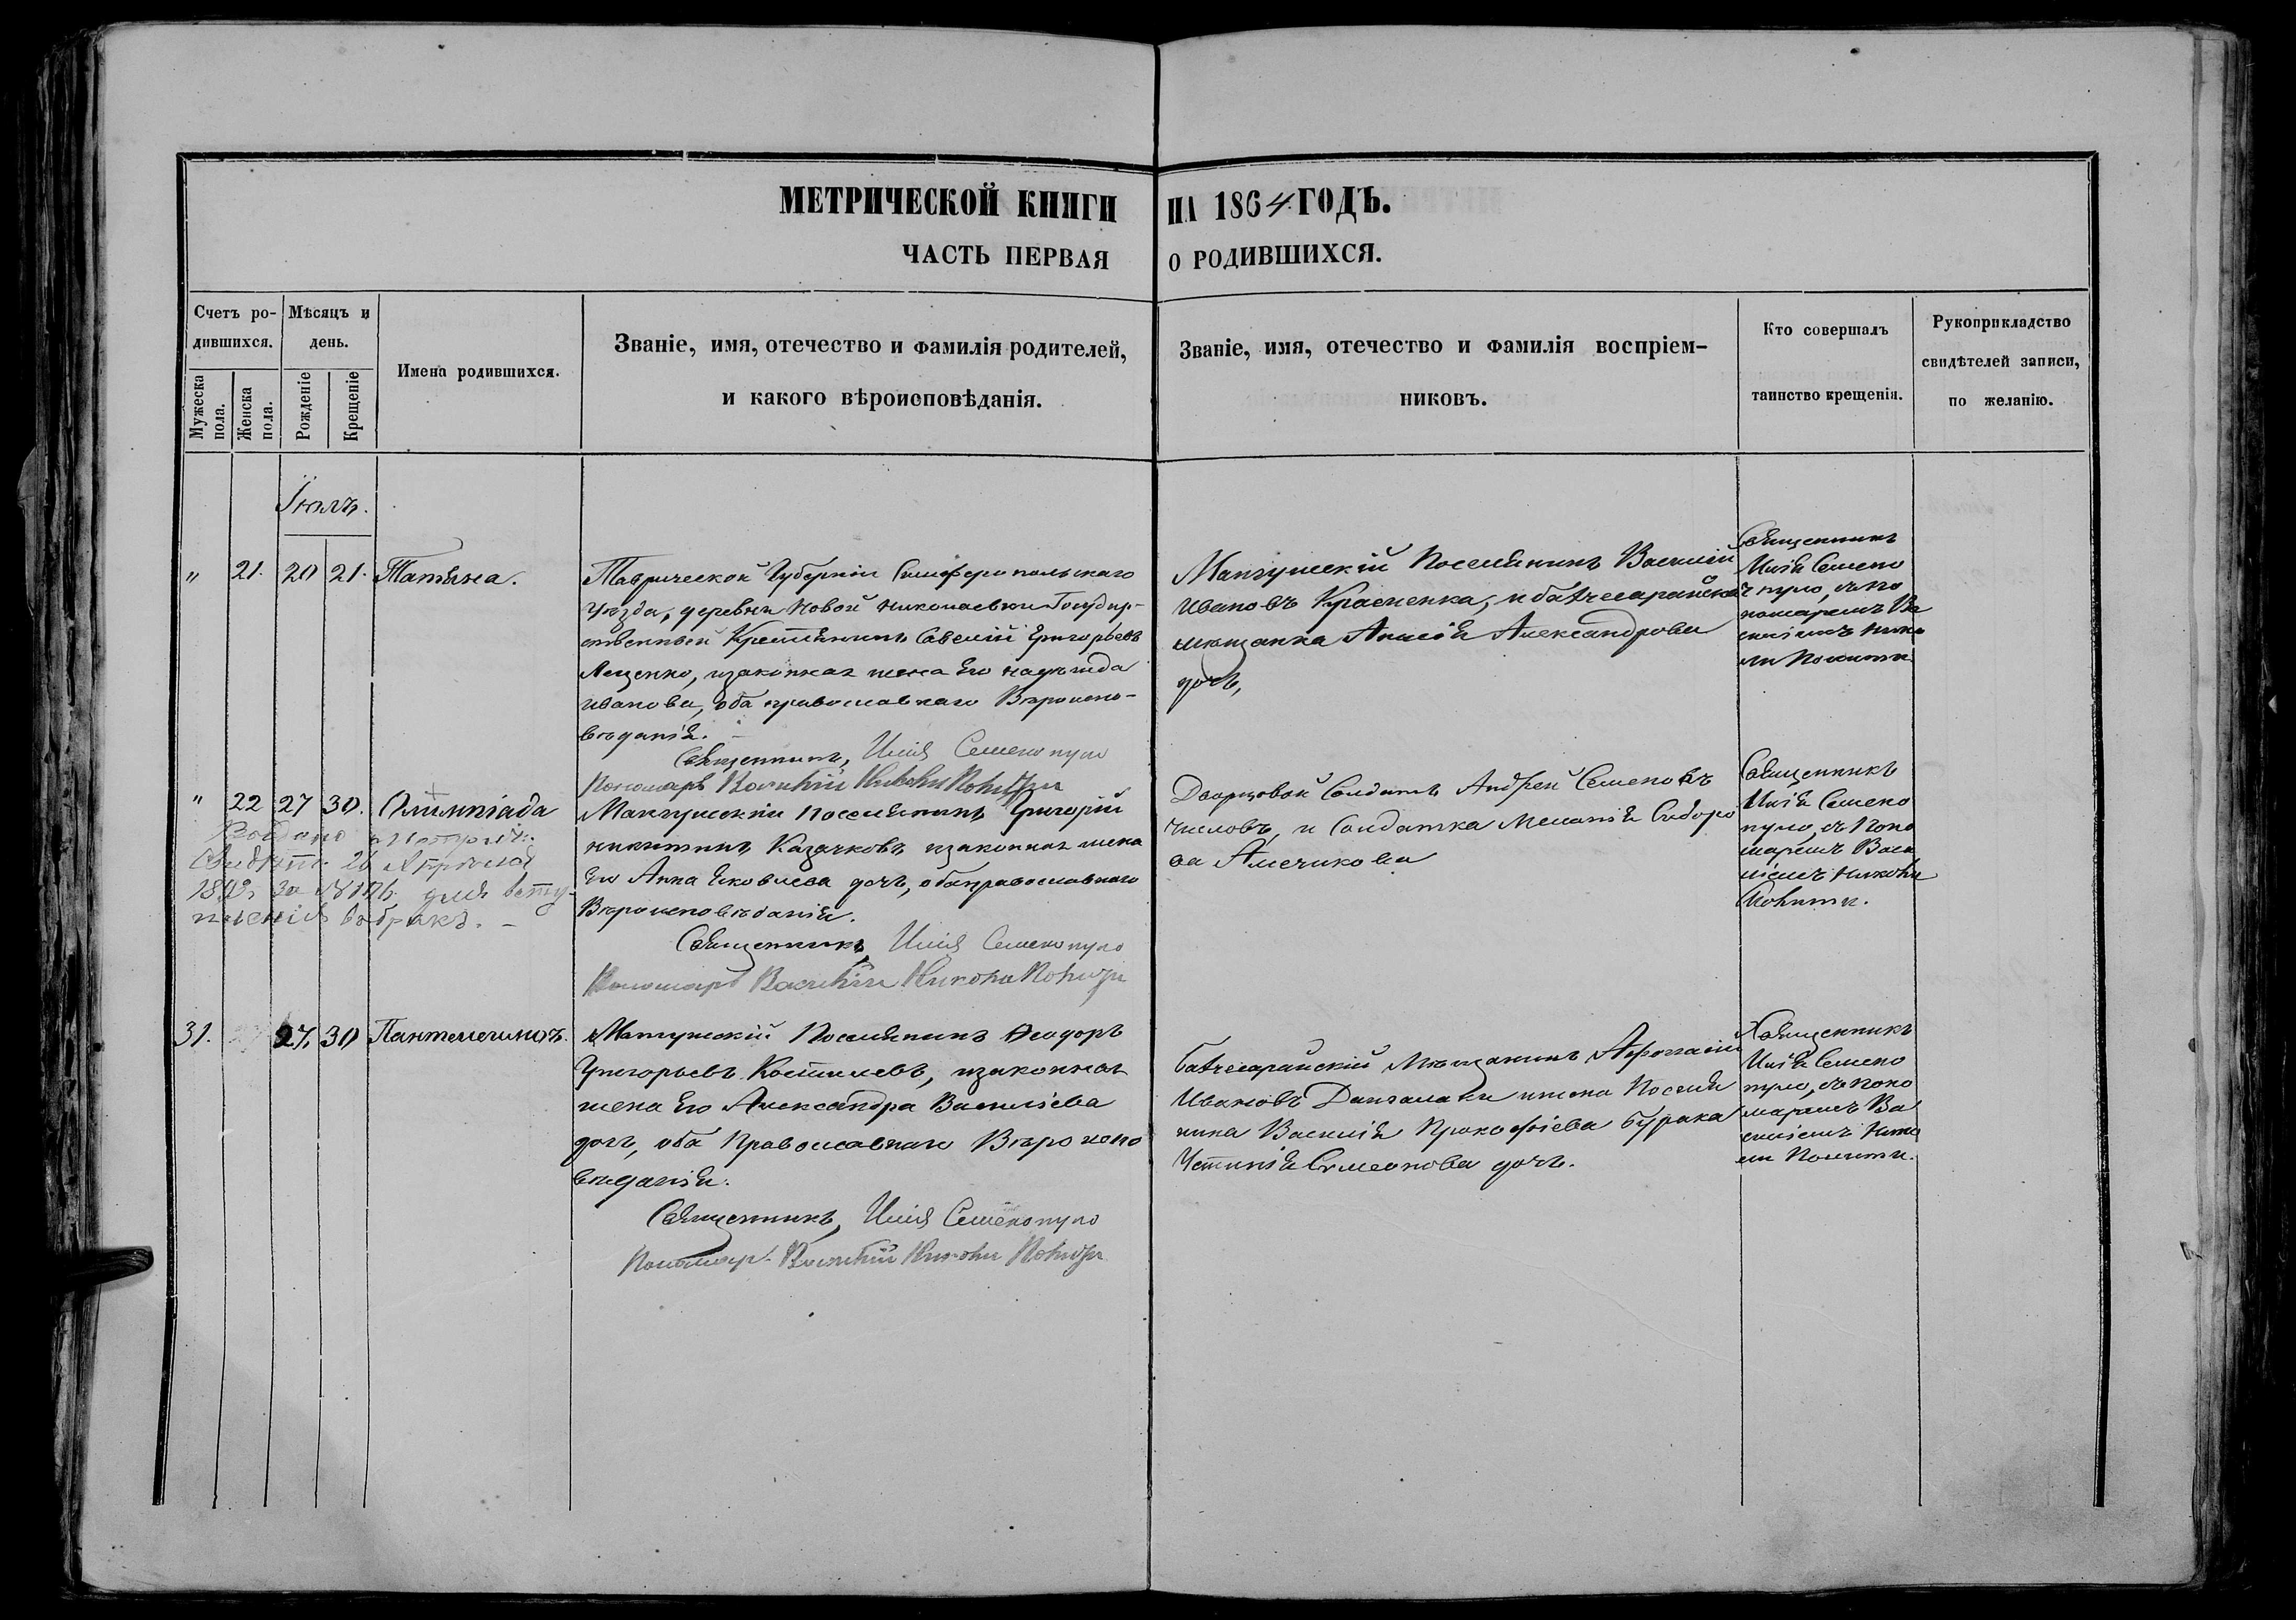 МЕТРИЧЕСКОЙ КНИГИ НА 1864 ГОДЪ.
ЧАСТЬ ПЕРВАЯ О РОДИВШИХСЯ.
Счетъ ро-
дившихся.
Мужеска
пола.
Женска
пола.
Мѣсяцъ и
день.
Рожденіе
Крещеніе
Имена родившихся.
Званіе, имя, отечество и фамилія родителей,
и какого вѣроисповѣданія.
Званіе, имя, отечество и фамилія воспріем-
никовъ.
Кто совершалъ
таинство крещенія.
Рукоприкладство
свидѣтелей записи,
по желанію.
Іюль.
" 21. 20 21. Татіяна.
Таврической Губерніи Симферопольскаго
уѣзда, деревни Новой Николаевки Государ-
ственный Крестянинъ Савелій Григорьевъ
Лещенко, изаконная жена Его Надѣжда
Иванова, оба православнаго Вѣроиспо-
вѣданія.
Священникъ, Илія Семенопуло
Пономарь Василій
Мангушскій Поселянинъ Василій
Ивановъ Красненка, и бахчесарайская
мѣщанка Анисія Александрова
дочь,
Священникъ
Илія Семено
пуло, съ по
номаремъ Ва
силіемъ
" 22 27 30. Олимпіада
Свидѣт. 26 Апрѣля
за № 106. для всту-
пленія въ бракъ. -
Мангушскій поселянинъ Григорій
Никитинъ Казачковъ, изаконная жена
Его Анна Яковлева дочь, оба православнаго
Вѣроисповѣданія.
Священникъ, Илія Семенопуло
Пономарь Василій
Дворцовой Солдатъ Андрей Семеновъ
Числовъ, и Солдатка Меланія Сидоро
ва
Священникъ
Илія Семено
пуло, съ Поно
маремъ Васи
ліемъ
31. 27. 30 Пантелеимонъ.
Мангушскій Поселянинъ Ѳеодоръ
Григорьевъ Костылевъ, изаконная
жена Его Александра Василіева
дочь, оба Православнаго Вѣроиспо
вѣданія.
Священникъ, Илія Семенопуло
Пономарь Василій
Бахчесарайскій Мѣщанинъ
Ивановъ и жена Поселя
нина Василія Прокофіева Бурака
Симеонова дочь.
Священникъ
Илія Семено
пуло, съ поно
маремъ Ва
силіемъ